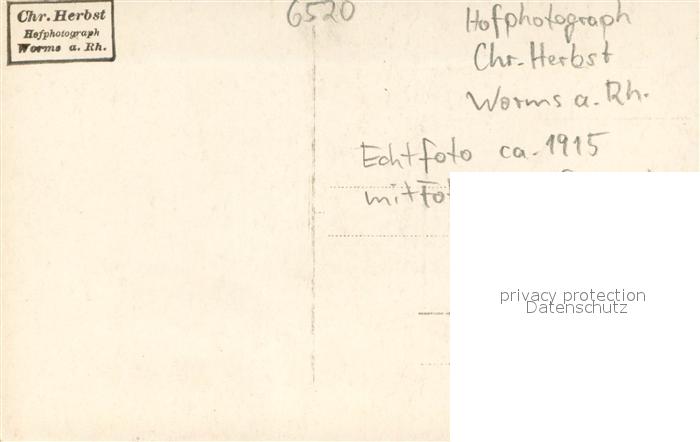 Chr. Herbst
Hofphotograph
Worms a. Rh.
6520
Hofphotograph
Chr. Herbst
Worms a. Rh.
Echtfoto ca. 1915
mit
privacy protection
Datenschutz